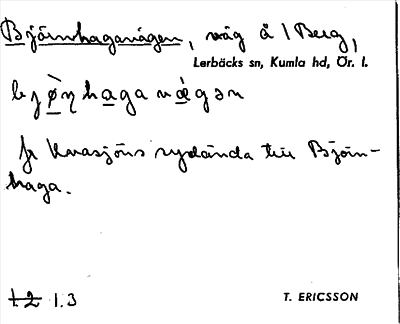 Björnhagavägen, väg å 1 Berg,
Lerbäcks sn, Kumla hd, Ör. l.
bjø̀ṇhagavægən
fr Kvasjöns sydända till Björn-
haga.
1.2 1.3
T. ERICSSON